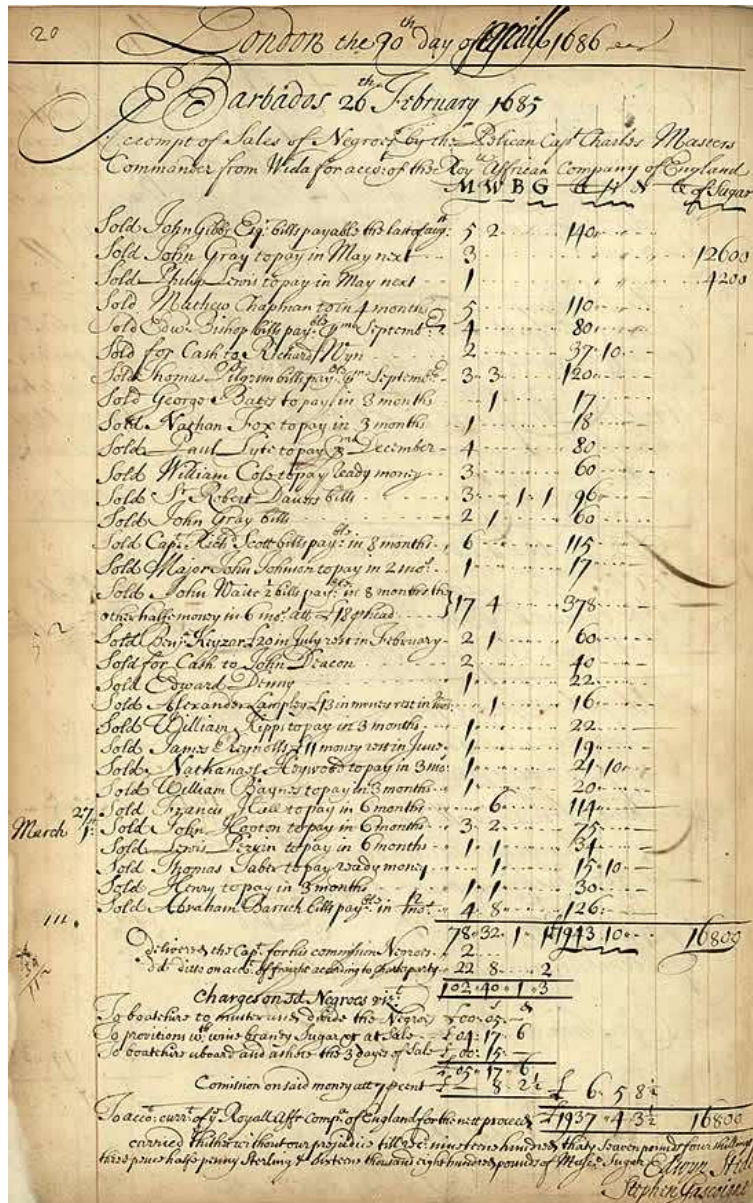 20
London the 20th day of Aprill 1686
Barbados 26th February 1685
Accompt of Sales of Negroes by the Pelican Capt Charles Masters
Commander from Wida for acct of the Roy Affrican Company of England
M W B G £ s d lb of Sugar
Sold John Gibbs Esq bills payable the last of Aug 5 2 140
Sold John Gray to pay in May next 3 12600
Sold Philip Lewis to pay in May next 1 4200
Sold Mathew Chapman to in 4 months 5 110
Sold Edw Bishop bills pay Septemb 4 80
Sold for Cash to Richard Wyn 2 37 10
Sold Thomas Pilgrim bills pay Septemb 3 3 120
Sold George Bates to pay in 3 months 1 17
Sold Nathan Fox to pay in 3 months 1 18
Sold Paul Lyte to pay December 4 80
Sold William Cole to pay ready money 3 60
Sold Sr Robert Davers bills 3 1 1 96
Sold John Gray bills 2 1 60
Sold Capt Rich Scott bills pay in 8 months 6 115
Sold Major John Johnson to pay in 2 mo 1 17
Sold John Waite ½ bills pay in 8 months the
other halfe money in 6 mo att £18 head 17 4 378
Sold Benj Keyzar £20 in July rest in February 2 1 60
Sold for Cash to John Deacon 2 40
Sold Edward Denny 1 22
Sold Alexander Lampley £13 in money rest in 1 16
Sold William Kipps to pay in 3 months 1 22
Sold James Reynolls £11 money rest in June 1 19
Sold Nathanael Heywood to pay in 3 mo 1 21 10
Sold William Baynes to pay in 3 months 1 20
27 Sold Francis Hall to pay in 6 months 6 114
March 1 Sold John Hooton to pay in 6 months 3 2 75
Sold Lewis to pay in 6 months 1 1 34
Sold Thomas to pay ready money 1 15 10
Sold Henry to pay in 3 months 1 1 30
Sold Abraham Baruch bills pay in 4 8 126
78 32 1 1 1943 10 16800
delivered the Capt for his commission Negroes 2
dd ditto on acct of freight according to Charterparty 22 8 2
102 40 1 3
Charges on sd Negroes vizt
To boat hire to muster and divide the Negroes £00 05
To provitions wth wine brandy Sugar at Sale £04 17 6
To boat hire aboard and ashore the 3 dayes of Sale £00 15
£05 17 6
Comision on said money att 7 cent £ 8 2½ £ 6 5 8½
To acct curr of Royall Affr Comp of England for the nett proceed £1937 4 3½ 16800
carried thither without our prejudice till nineteen hundred thirty seaven pounds four shillings
three pence halfe penny Sterling & sixteene thousand eight hundred pounds of Sugar
Edwyn
Stephen Gascoigne